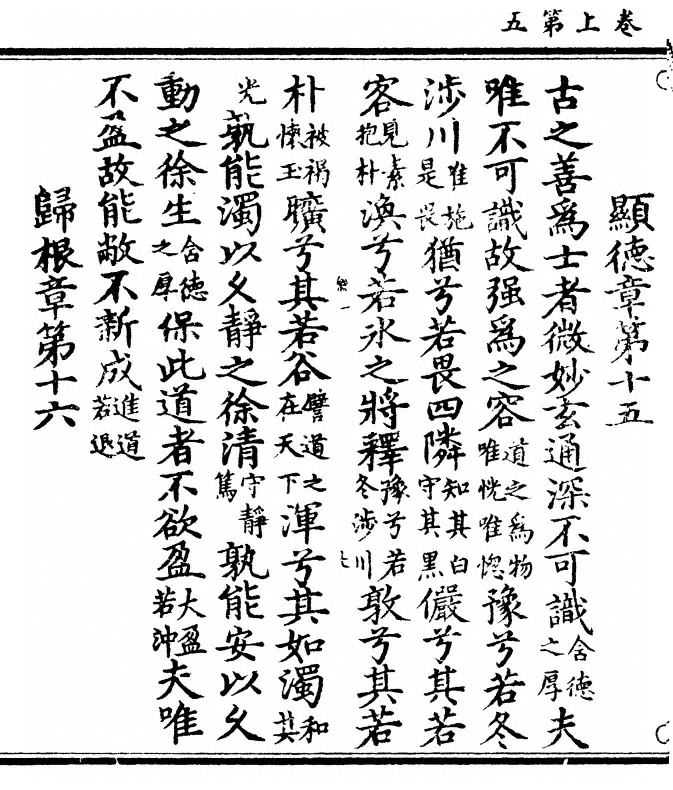 卷上第五
顯德章第十五
古之善爲士者微妙玄通深不可識含德之厚夫
唯不可識故强爲之容道之爲物唯恍唯惚豫兮若冬
涉川唯施是畏猶兮若畏四隣知其白守其黑儼兮其若
客見素抱朴渙兮若氷之將釋豫兮若冬涉川敦兮其若
朴被褐懷玉曠兮其若谷譬道之在天下渾兮其如濁和其
光孰能濁以久靜之徐清守靜篤孰能安以久
動之徐生含德之厚保此道者不欲盈大盈若沖夫唯
不盈故能敝不新成進道若退
歸根章第十六